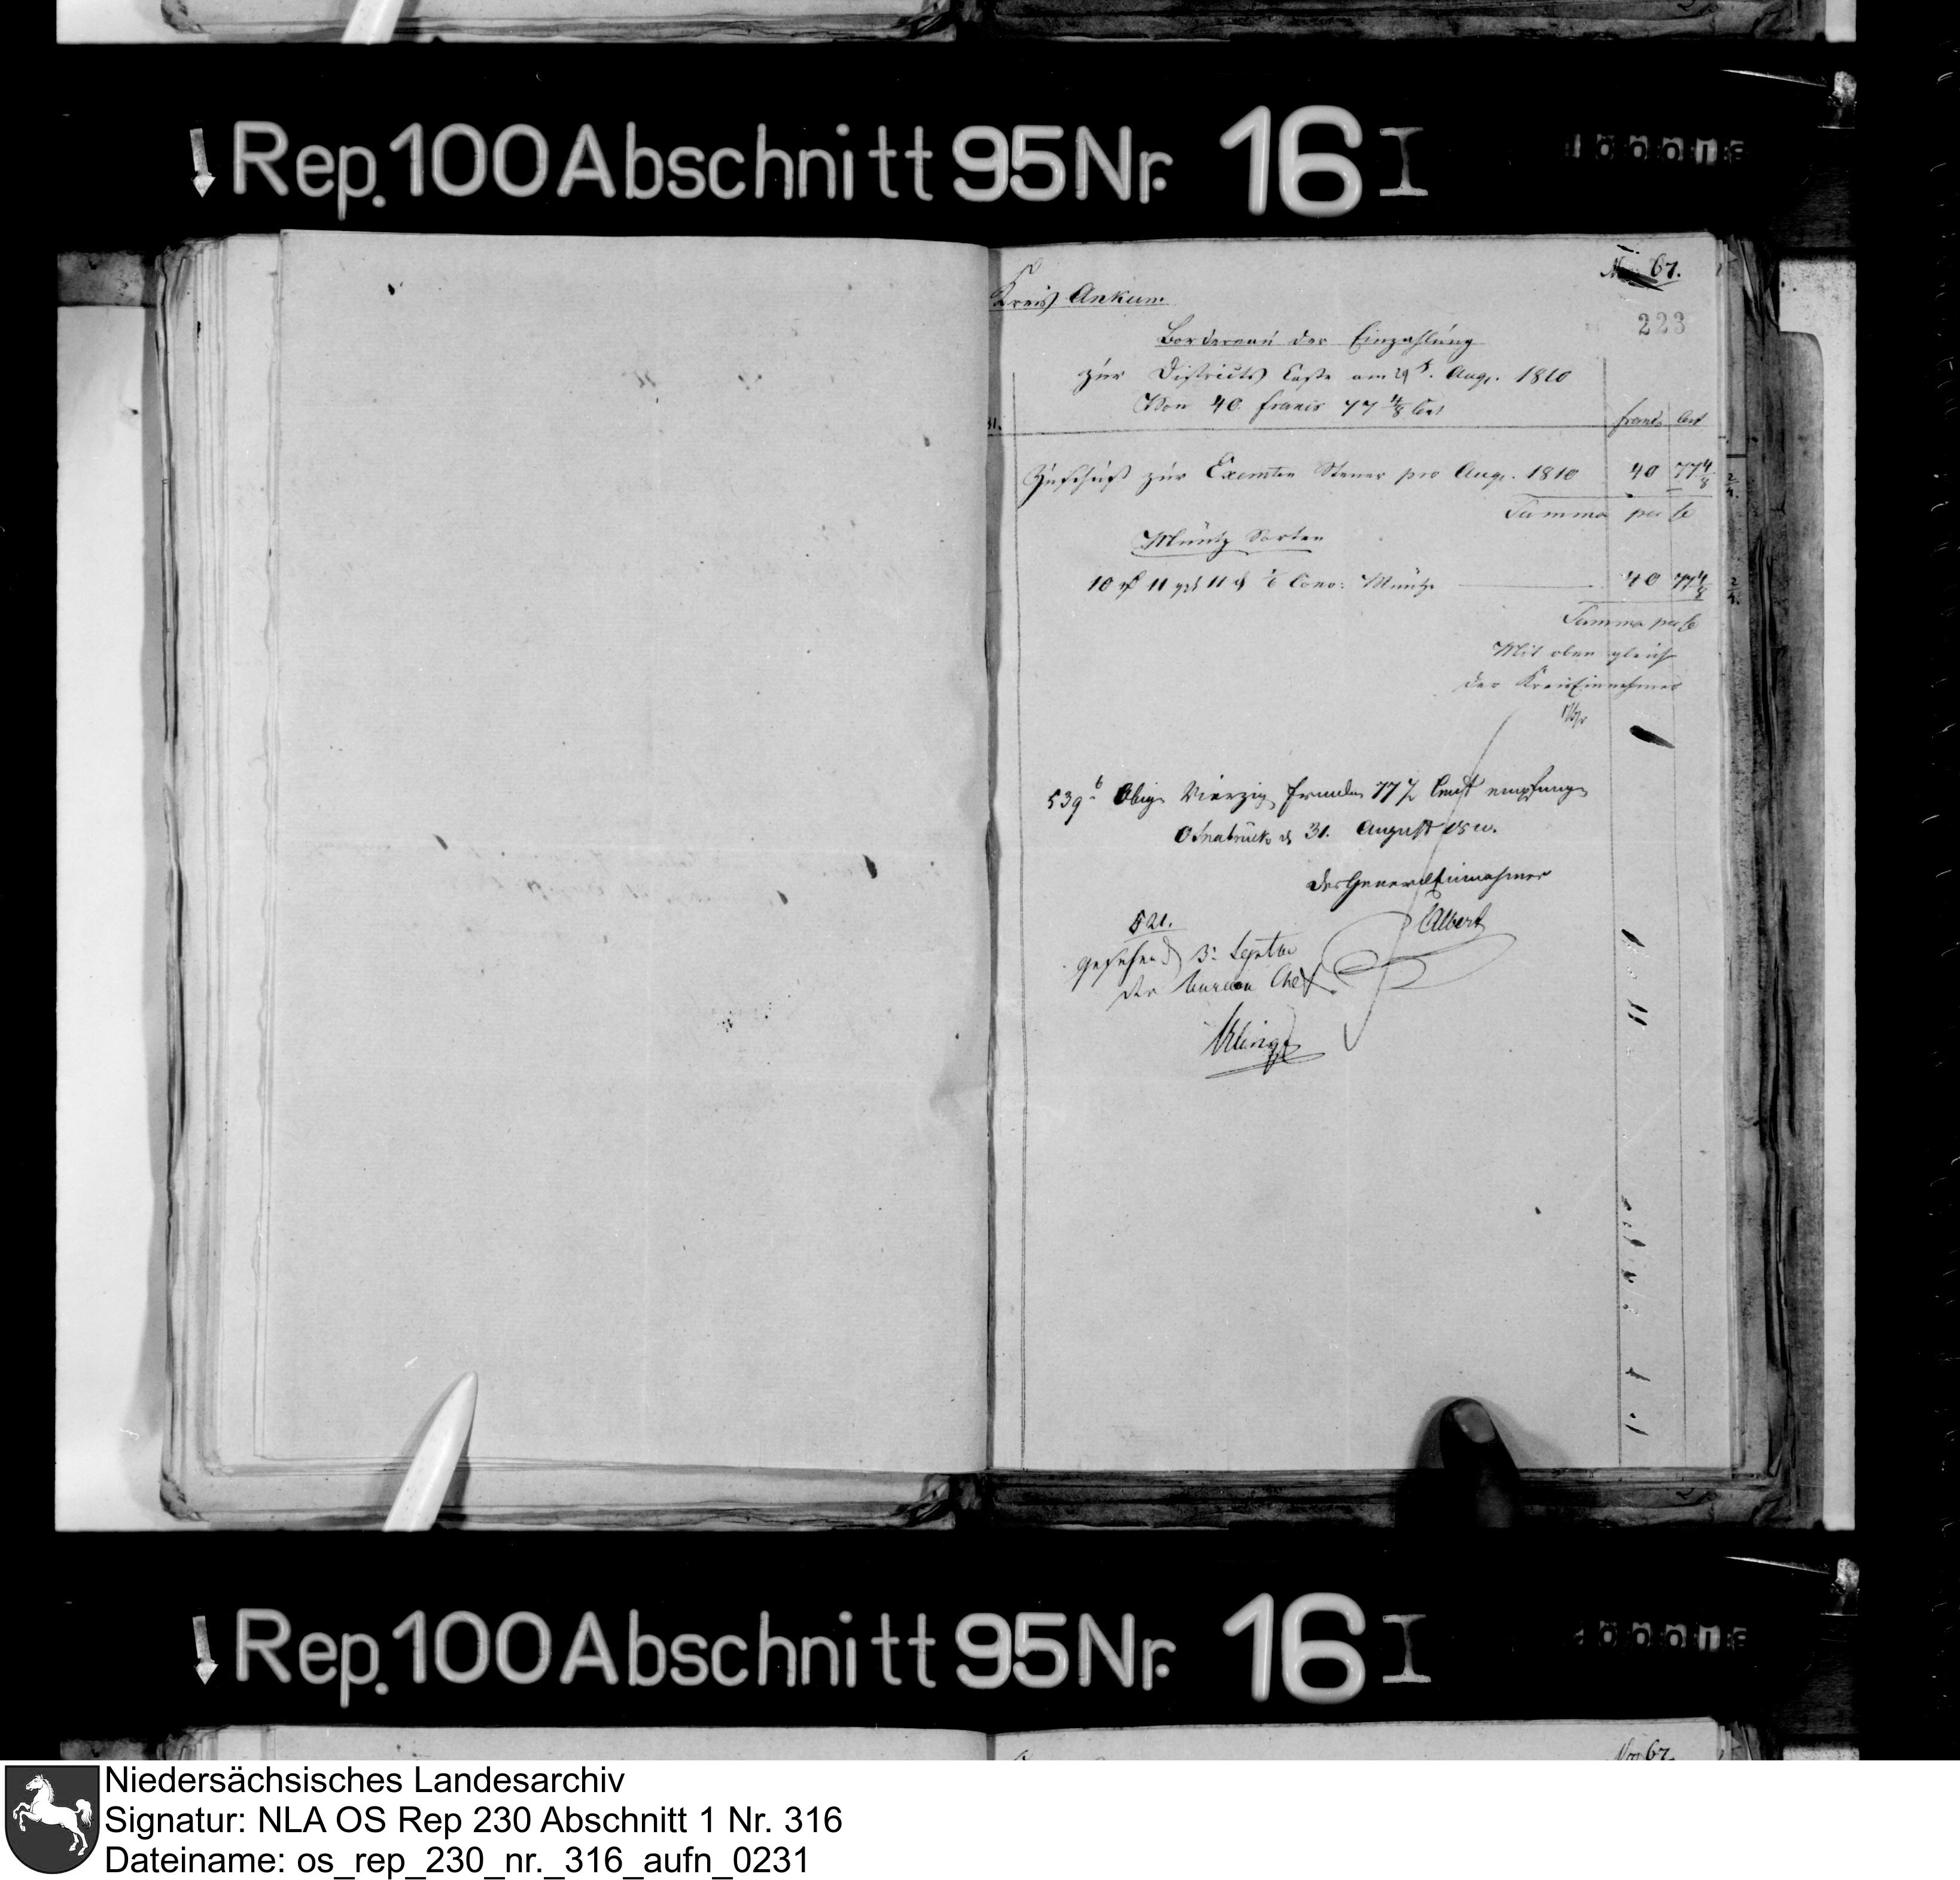 Rep. 100 Abschnitt 95 Nr. 16 I
No 67.
223
Kreis Ankum
Bordereau der Einzahlung
zur Districts Casse am 29 t. Aug. 1810
Von 40 francs 77 4/8 Cent
francs Cent
Zuschuß zur Exemten Steuer pro Aug. 1810 40 77 4/8
Summa per se
Müntz Sorten
10 rf 11 ggl 11 d Conv: Müntze 40 77 4/8
Summa per se
Mit oben gleich
der KreisEinnehmer
539 b Obige Vierzig Franken 77 1/2 Cent empfangen
Osnabrück d 31. August 1810.
Der GeneralEinnehmer
Albert
521.
gesehen d 3t Septbr
der Bureau Chef
Klinge
Rep. 100 Abschnitt 95 Nr. 16 I
Nro 67.
Niedersächsisches Landesarchiv
Signatur: NLA OS Rep 230 Abschnitt 1 Nr. 316
Dateiname: os_rep_230_nr._316_aufn_0231